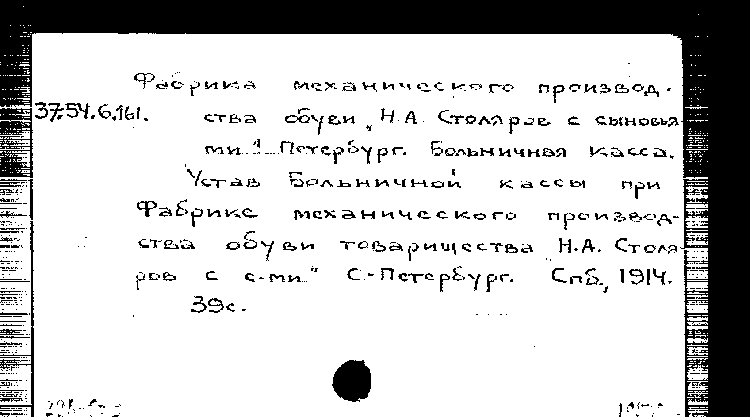 Фабрика механического производ-
37.54.6.161. ства обуви „Н.А. Столяров с сыновья
ми" Петербург. Больничная касса.
Устав Больничной кассы при
Фабрике механического производ-
ства обуви товарищества „Н.А. Столя
ров с с-ми" С.-Петербург. Спб, 1914.
39с.